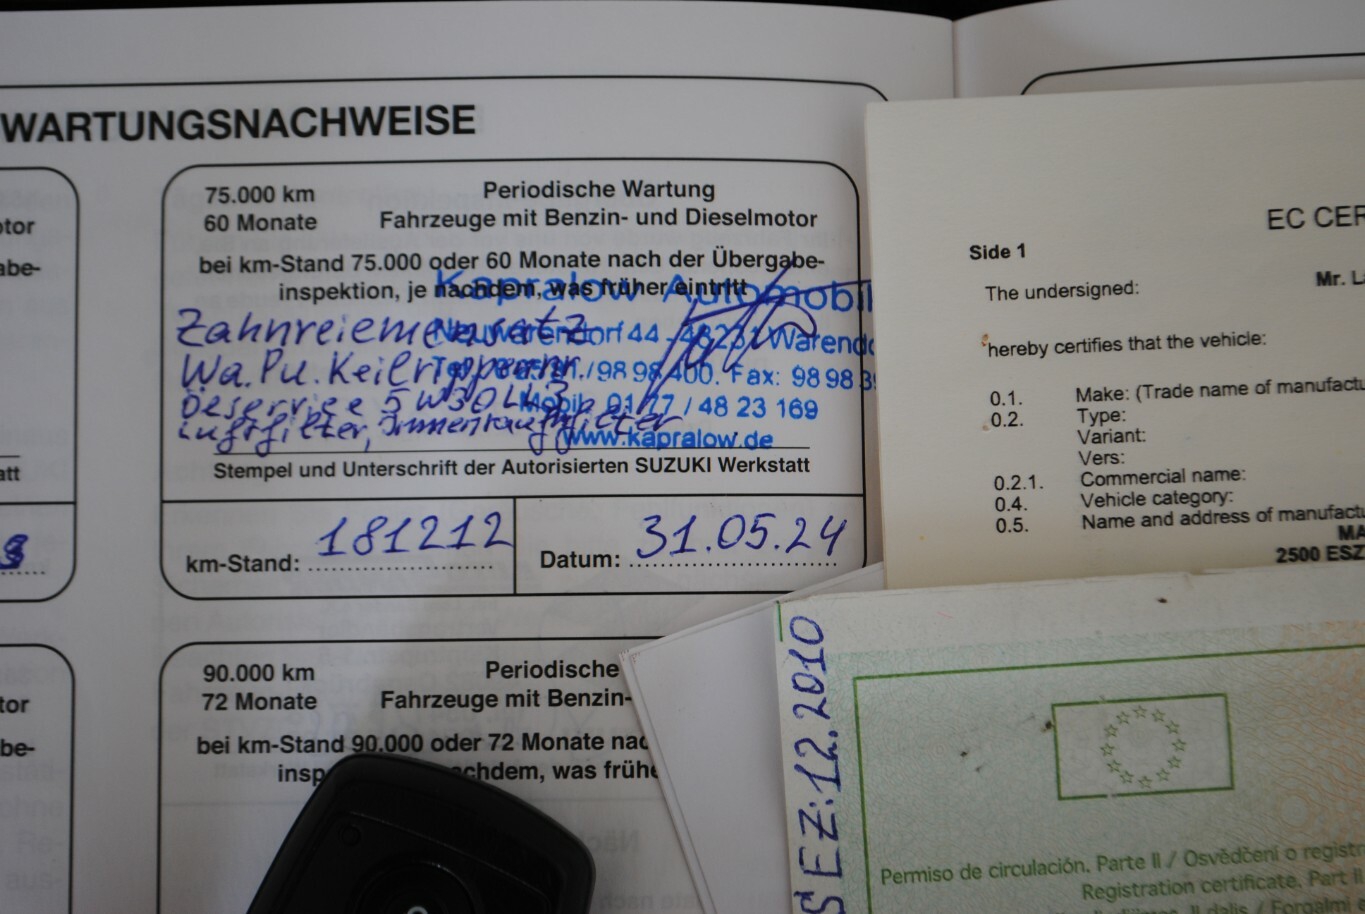 WARTUNGSNACHWEISE
75.000 km
60 Monate
Periodische Wartung
Fahrzeuge mit Benzin- und Dieselmotor
bei km-Stand 75.000 oder 60 Monate nach der Übergabe-
inspektion, je nachdem, was früher eintritt
Kapralow Automobil
Neuwarendorf 44 - 48231 Warendo
98 98 400. Fax: 98 98 3
Mobil 0177 / 48 23 169
www.kapralow.de
Zahnreiemensatz
Wa.Pu.Keilrippenr.
Oeservice 5W30
Luftfilter,
Stempel und Unterschrift der Autorisierten SUZUKI Werkstatt
km-Stand: 181212
Datum: 31.05.24
90.000 km
72 Monate
Periodische
Fahrzeuge mit Benzin-
bei km-Stand 90.000 oder 72 Monate nac
insp
chdem, was frühe
otor
abe-
att
tor
be-
EC CER
Side 1
The undersigned:
Mr. La
hereby certifies that the vehicle:
0.1. Make: (Trade name of manufactu
0.2. Type:
Variant:
Vers:
0.2.1. Commercial name:
0.4. Vehicle category:
0.5. Name and address of manufactu
MA
2500 ESZ
SEZ:12.2010
Permiso de circulación. Parte II / Osvědčení o registr
Registration certificate. Part II